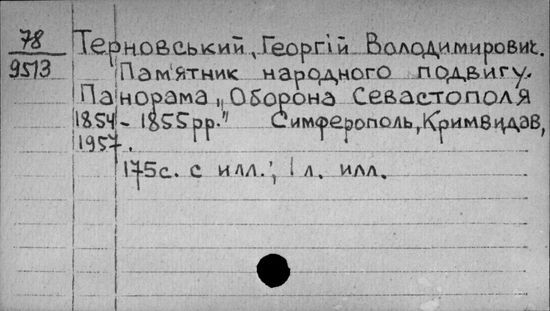 78 Терновський, Георгій Володимирович.
9513 Пам'ятник народного подвигу.
Панорама „Оборона Севастополя
1854-1855рр." Симферополь, Кримвидав,
1957.
175с. с илл.; 1 л. илл.